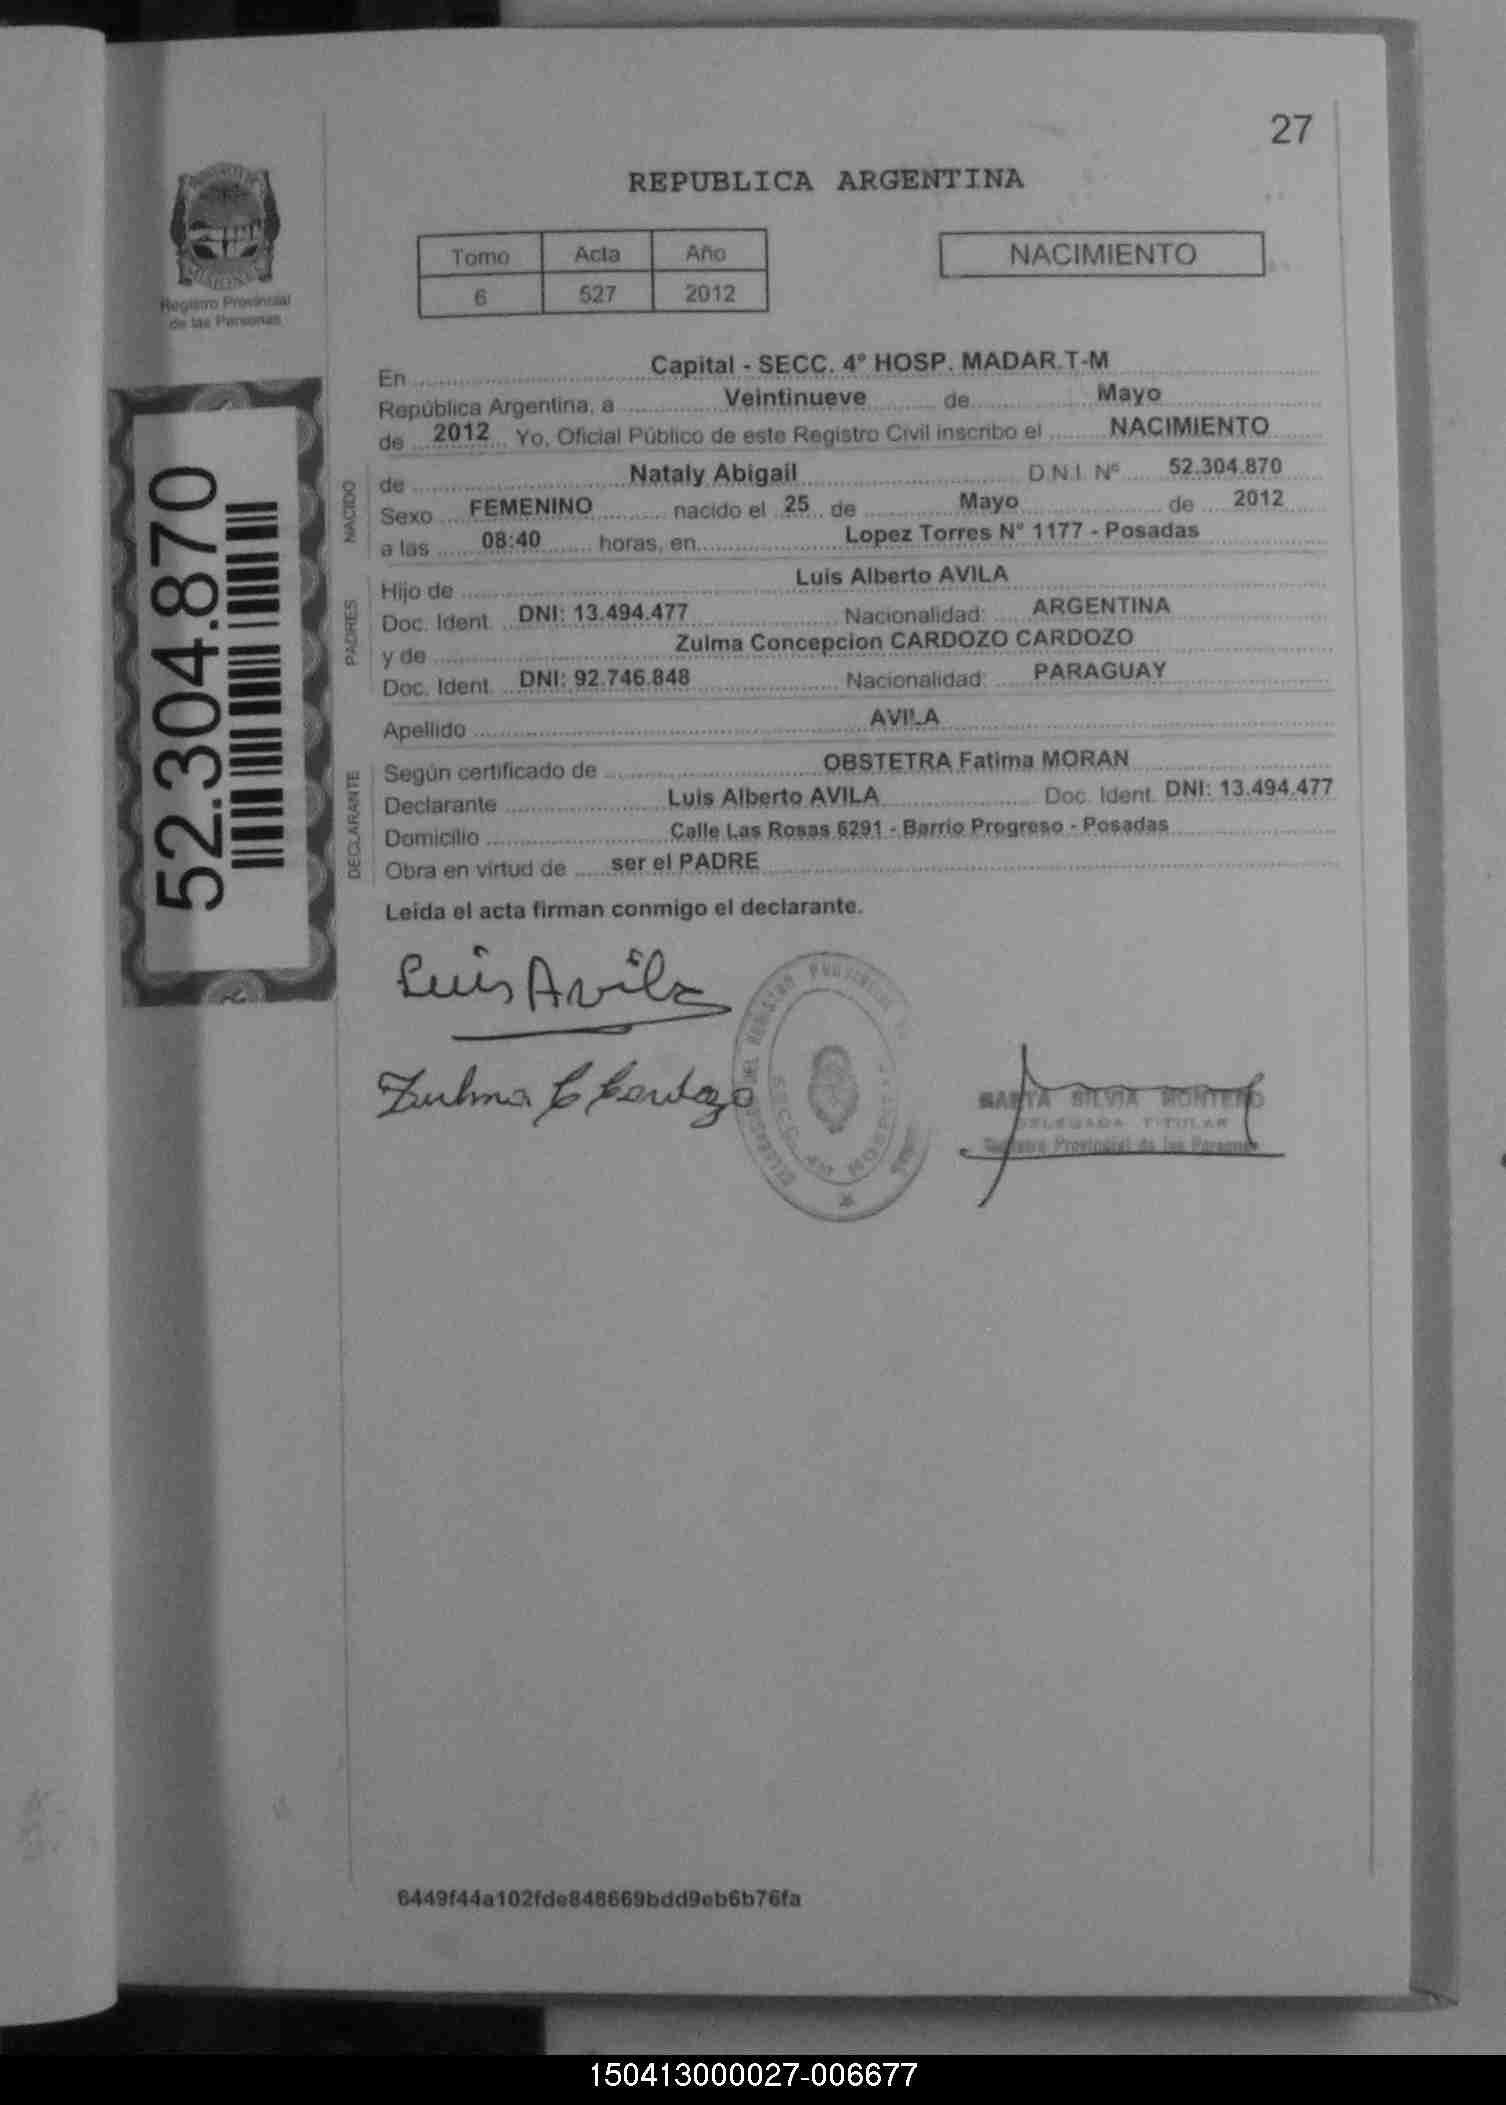 27
REPUBLICA ARGENTINA
Registro Provincial
de las Personas
Tomo Acta Año
6 527 2012
NACIMIENTO
52.304.870
En Capital - SECC. 4° HOSP. MADAR.T-M
República Argentina, a Veintinueve de Mayo
de 2012 Yo, Oficial Público de este Registro Civil inscribo el NACIMIENTO
NACIDO
de Nataly Abigail D.N.I. N° 52.304.870
Sexo FEMENINO nacido el 25 de Mayo de 2012
a las 08:40 horas, en Lopez Torres N° 1177 - Posadas
PADRES
Hijo de Luis Alberto AVILA
Doc. Ident. DNI: 13.494.477 Nacionalidad: ARGENTINA
y de Zulma Concepcion CARDOZO CARDOZO
Doc. Ident. DNI: 92.746.848 Nacionalidad: PARAGUAY
Apellido AVILA
DECLARANTE
Según certificado de OBSTETRA Fatima MORAN
Declarante Luis Alberto AVILA Doc. Ident. DNI: 13.494.477
Domicilio Calle Las Rosas 6291 - Barrio Progreso - Posadas
Obra en virtud de ser el PADRE
Leida el acta firman conmigo el declarante.
Luis Avila
Zulma C Cardozo
MARTA SILVIA MONTERO
DELEGADA TITULAR
Registro Provincial de las Personas
6449f44a102fde848669bdd9eb6b76fa
150413000027-006677